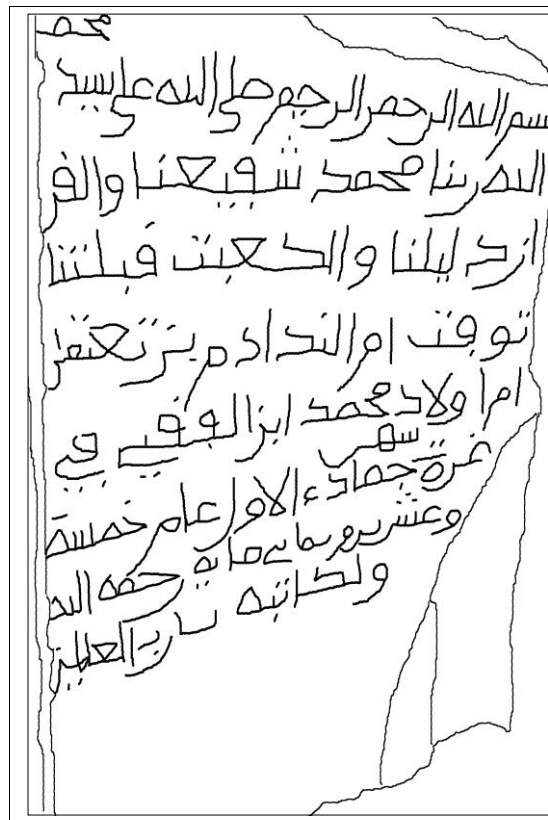 محمد
بسم الله الرحمن الرحيم صلى الله على سيد
الله ربنا محمد شفيعنا والقر
ان دليلنا والكعبت قبلتنا
توفت ام
ام اولاد محمد ابن الفقي في
شهر
غرة جمادى الاول عام خمسة
وعشرين وثماني ماية رحمه الله
ولكاتبه رب العالمين